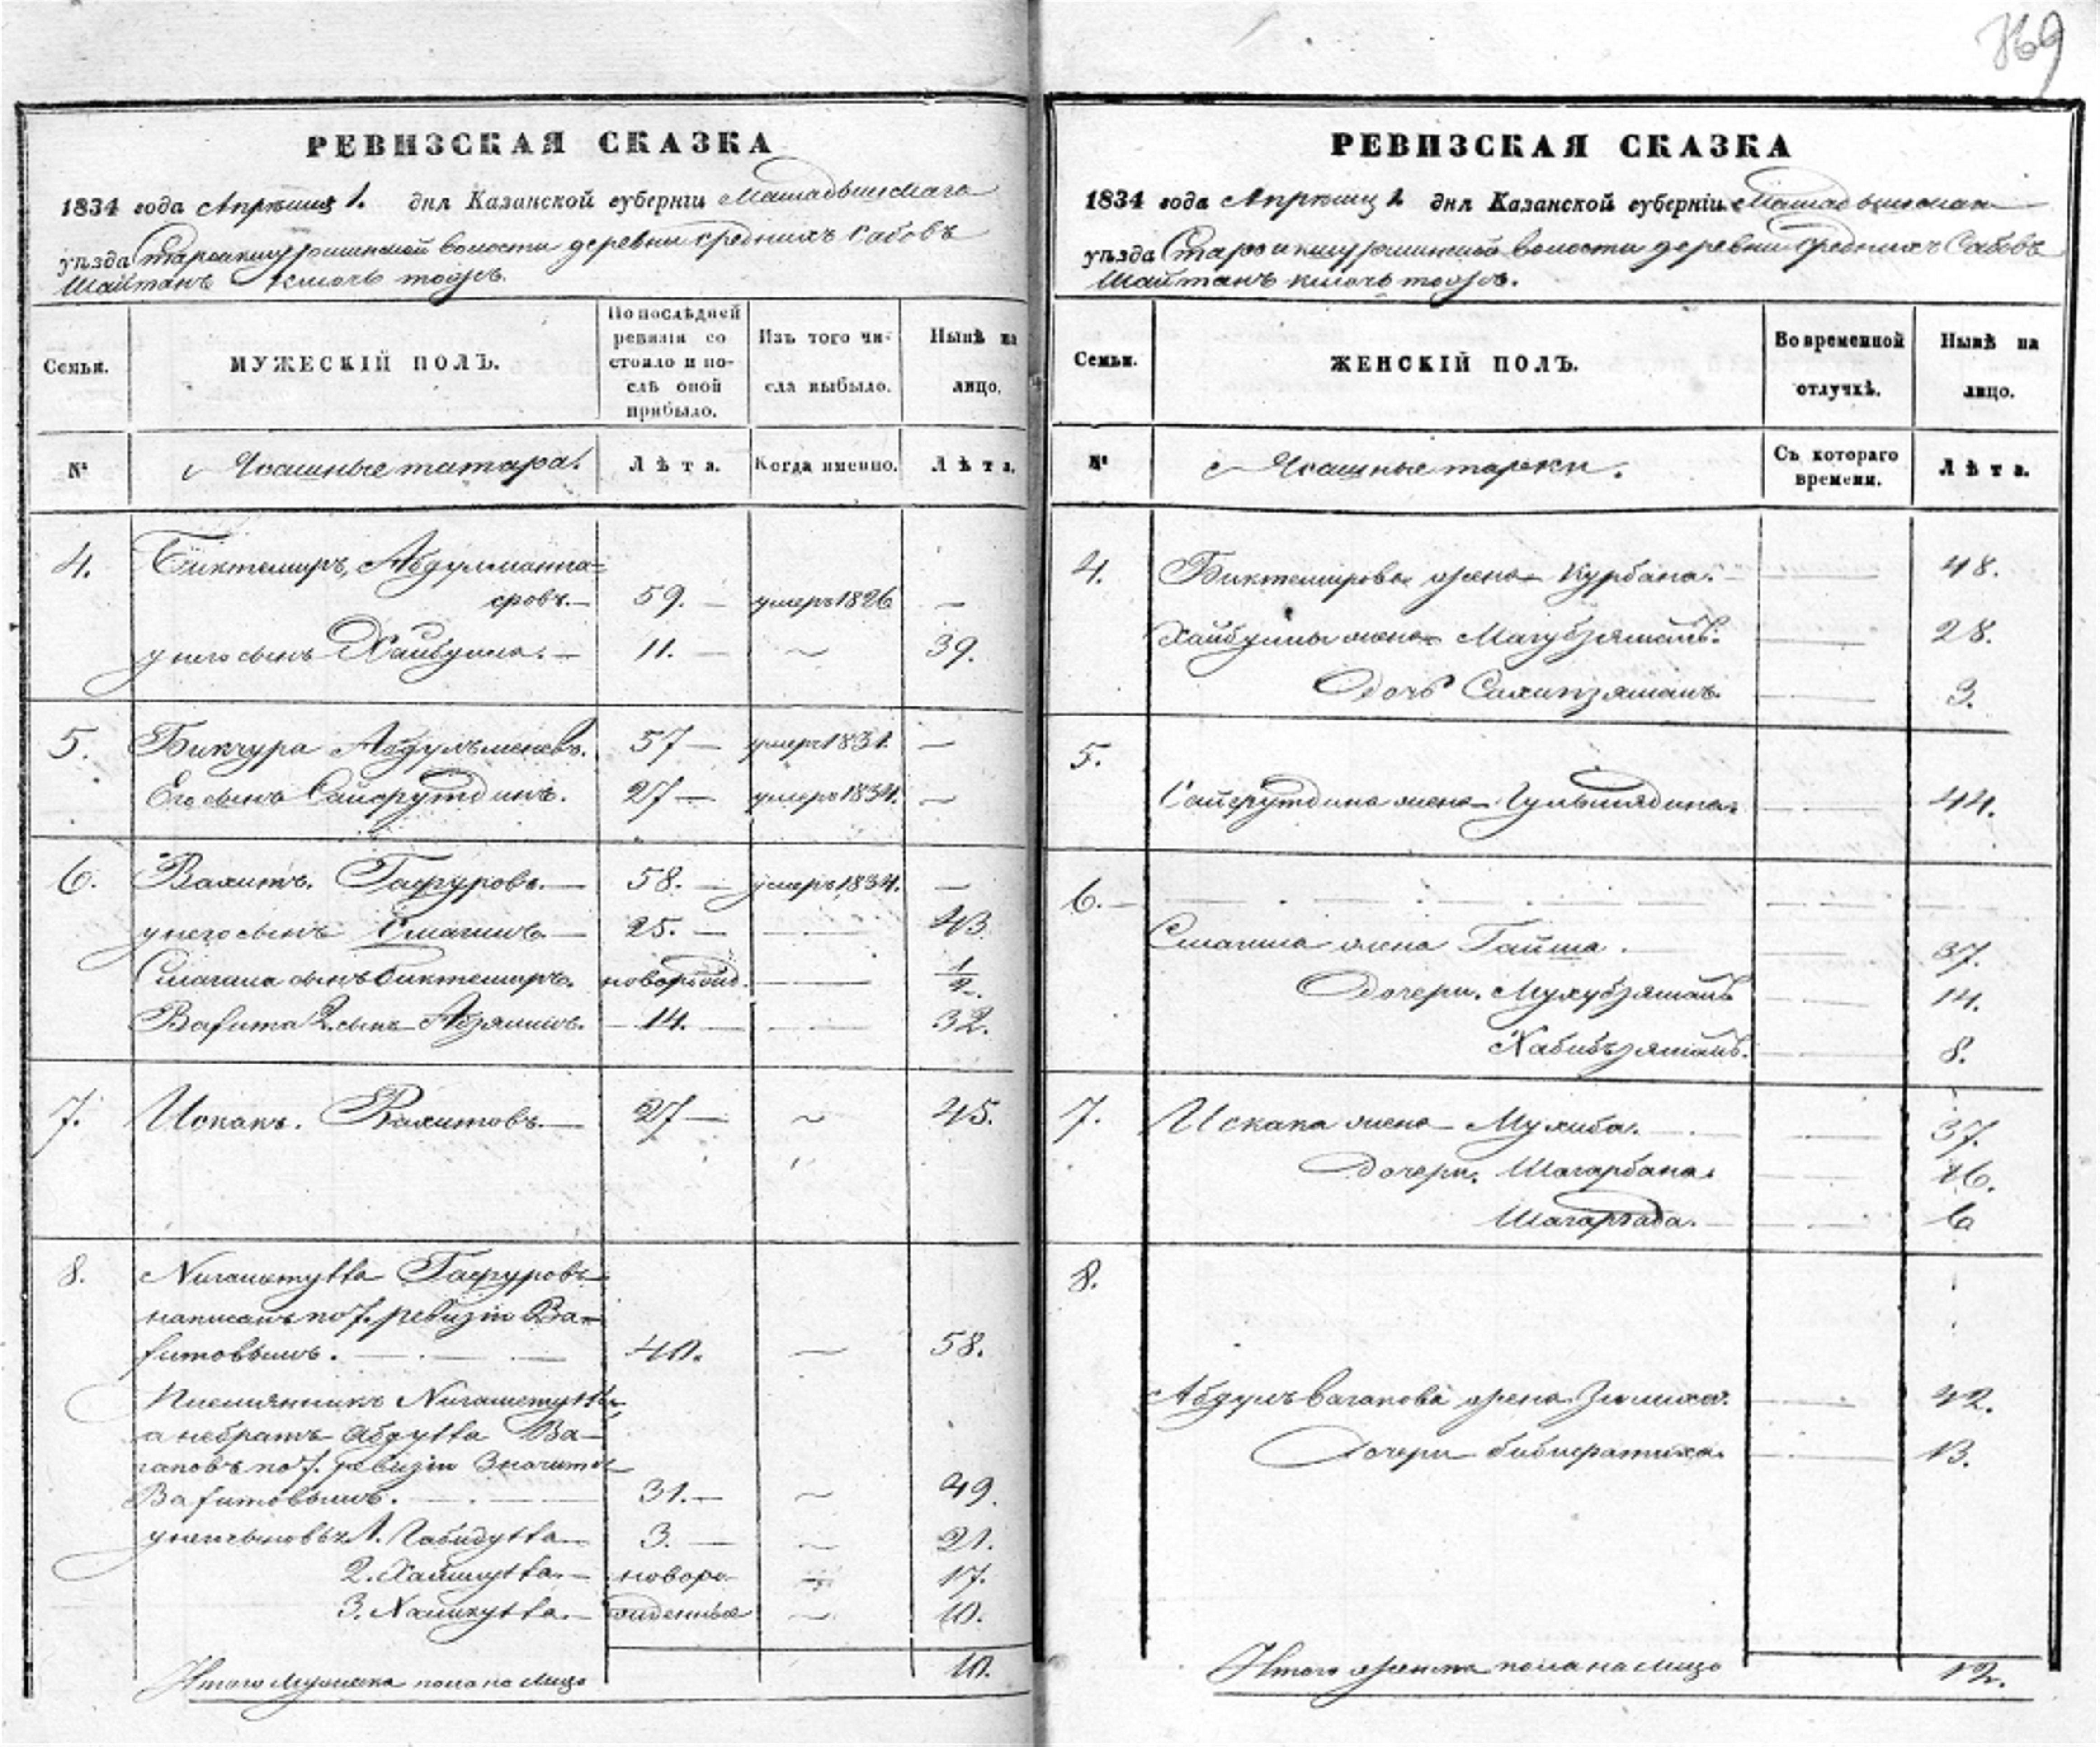 769
РЕВИЗСКАЯ СКАЗКА
1834 года Апрѣля 1. дня Казанской губерніи Мамадышскаго
уѣзда Староикшурминской волости деревни среднихъ Сабовъ
Шайтанъ ключь тожъ.
Семьи.
МУЖЕСКІЙ ПОЛЪ.
По послѣдней ревизіи состояло и послѣ оной прибыло.
Изъ того числа выбыло.
Нынѣ на лицо.
№
Ясашные татара.
Лѣта.
Когда именно.
Лѣта.
4. Биктемиръ, Абдулманна=
сровъ. 59. умеръ 1826 —
у него сынъ Хайбулла. 11. 39.
5. Бикчура Абдулъменевъ. 57 умеръ 1831. —
Его сынъ Сайфутдинъ. 27 умеръ 1834. —
6. Вахитъ. Гафуровъ. 58. умеръ 1834. —
у него сынъ Смагилъ 25. 43
Смагила сынъ Биктемиръ. новорожд. 1/2.
Вахита 2. сынъ Абзялилъ. 14. 32.
7. Искакъ. Вахитовъ. 27 45.
8. Нигаметулла Гафуровъ
написанъ по 7. ревизіи Ва=
хитовымъ. 40. 58.
Племянникъ Нигаметуллы,
а не братъ Абдулла Ва=
гаповъ по 7. ревизіи значится
Вахитовымъ. 31. 49.
у него сыновья 1. Габидулла 3. 21.
2. Халиулла. новоро- 17.
3. Халиулла. жденные 10.
Итого Мужеска пола на лицо 10.
РЕВИЗСКАЯ СКАЗКА
1834 года Апрѣля 1 дня Казанской губерніи Мамадышскаго
уѣзда Староикшурминской волости деревни среднихъ Сабовъ
Шайтанъ ключь тожъ.
Семьи.
ЖЕНСКІЙ ПОЛЪ.
Во временной отлучкѣ.
Нынѣ на лицо.
№
Ясашные
Съ котораго времени.
Лѣта.
4. Биктемирова жена Курбана. 48.
Хайбуллы жена Магубзямалъ. 28.
Дочь Сахипзямалъ. 3.
5.
Сайфутдина жена 44.
6.
Смагила жена Гайша. 37.
Дочери. Мухубзямалъ 14.
Хабибъзямалъ. 8.
7. Искака жена Мухиба. 37.
Дочери. Шагарбана. 16.
6
8.
Абдулъвагапова жена Зюлиха. 42.
Дочери 13.
Итого женска пола на лицо 12.